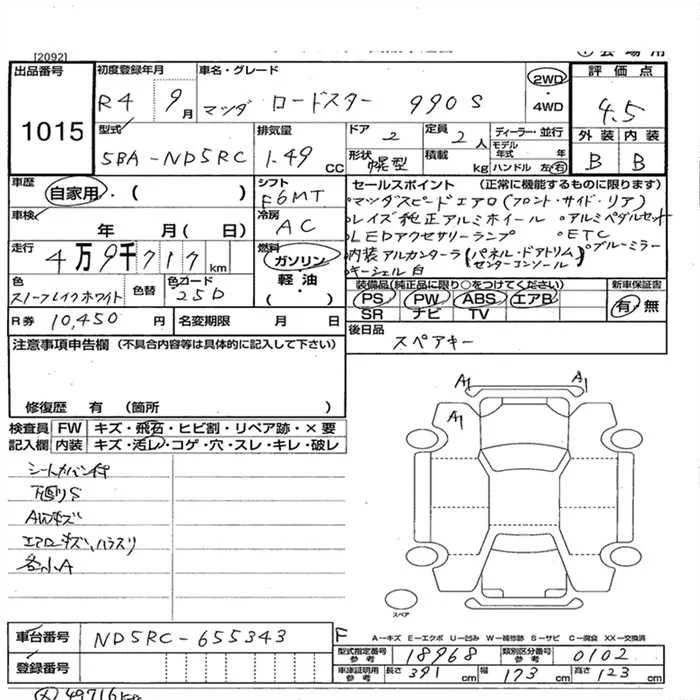 [2092]
出品番号
1015
初度登録年月
R4 9月
車名・グレード
マツダ ロードスター 990S
2WD
・
4WD
評価点
4.5
外装 内装
B B
型式
5BA-ND5RC
排気量
1.49 CC
ドア
2
定員
2人
ディーラー・並行
モデル年式 年
形状
幌型
積載 kg
ハンドル 左右
車歴
自家用・( )
シフト
F6MT
車検
年 月( 日)
冷房
AC
走行
4万9千717km
燃料
ガソリン
軽油
・
( )
色
スノーフレイクホワイト
色替
色コード
25D
R券 10,450円
名変期限 月 日
セールスポイント (正常に機能するものに限ります)
・マツダスピードエアロ(フロント・サイド・リア)
・レイズ純正アルミホイール ・アルミペダルセット
・LEDアクセサリーランプ ・ETC
・内装アルカンターラ(パネル・ドアトリム センターコンソール) ・ブルーミラー
・キーシェル白
装備品(純正品に限り○をつけてください)
PS PW ABS エアB
SR ナビ TV
新車保証書
有・無
後日品
スペアキー
注意事項申告欄(不具合内容等は具体的に記入して下さい)
修復歴 有 (箇所 )
検査員 FW キズ・飛石・ヒビ割・リペア跡・×要
記入欄 内装 キズ・汚レ・コゲ・穴・スレ・キレ・破レ
下廻りS
AWキズ
各小A
A1 A1
A1
スペア
車台番号 ND5RC-655343
登録番号
F
A－キズ E－エクボ U－凹み W－補修跡 S－サビ C－腐食 XX－交換済
型式指定番号 参考 18968
類別区分番号 参考 0102
車検証明用 参考 長さ 391 cm 幅 173 cm 高さ 123 cm
49716km